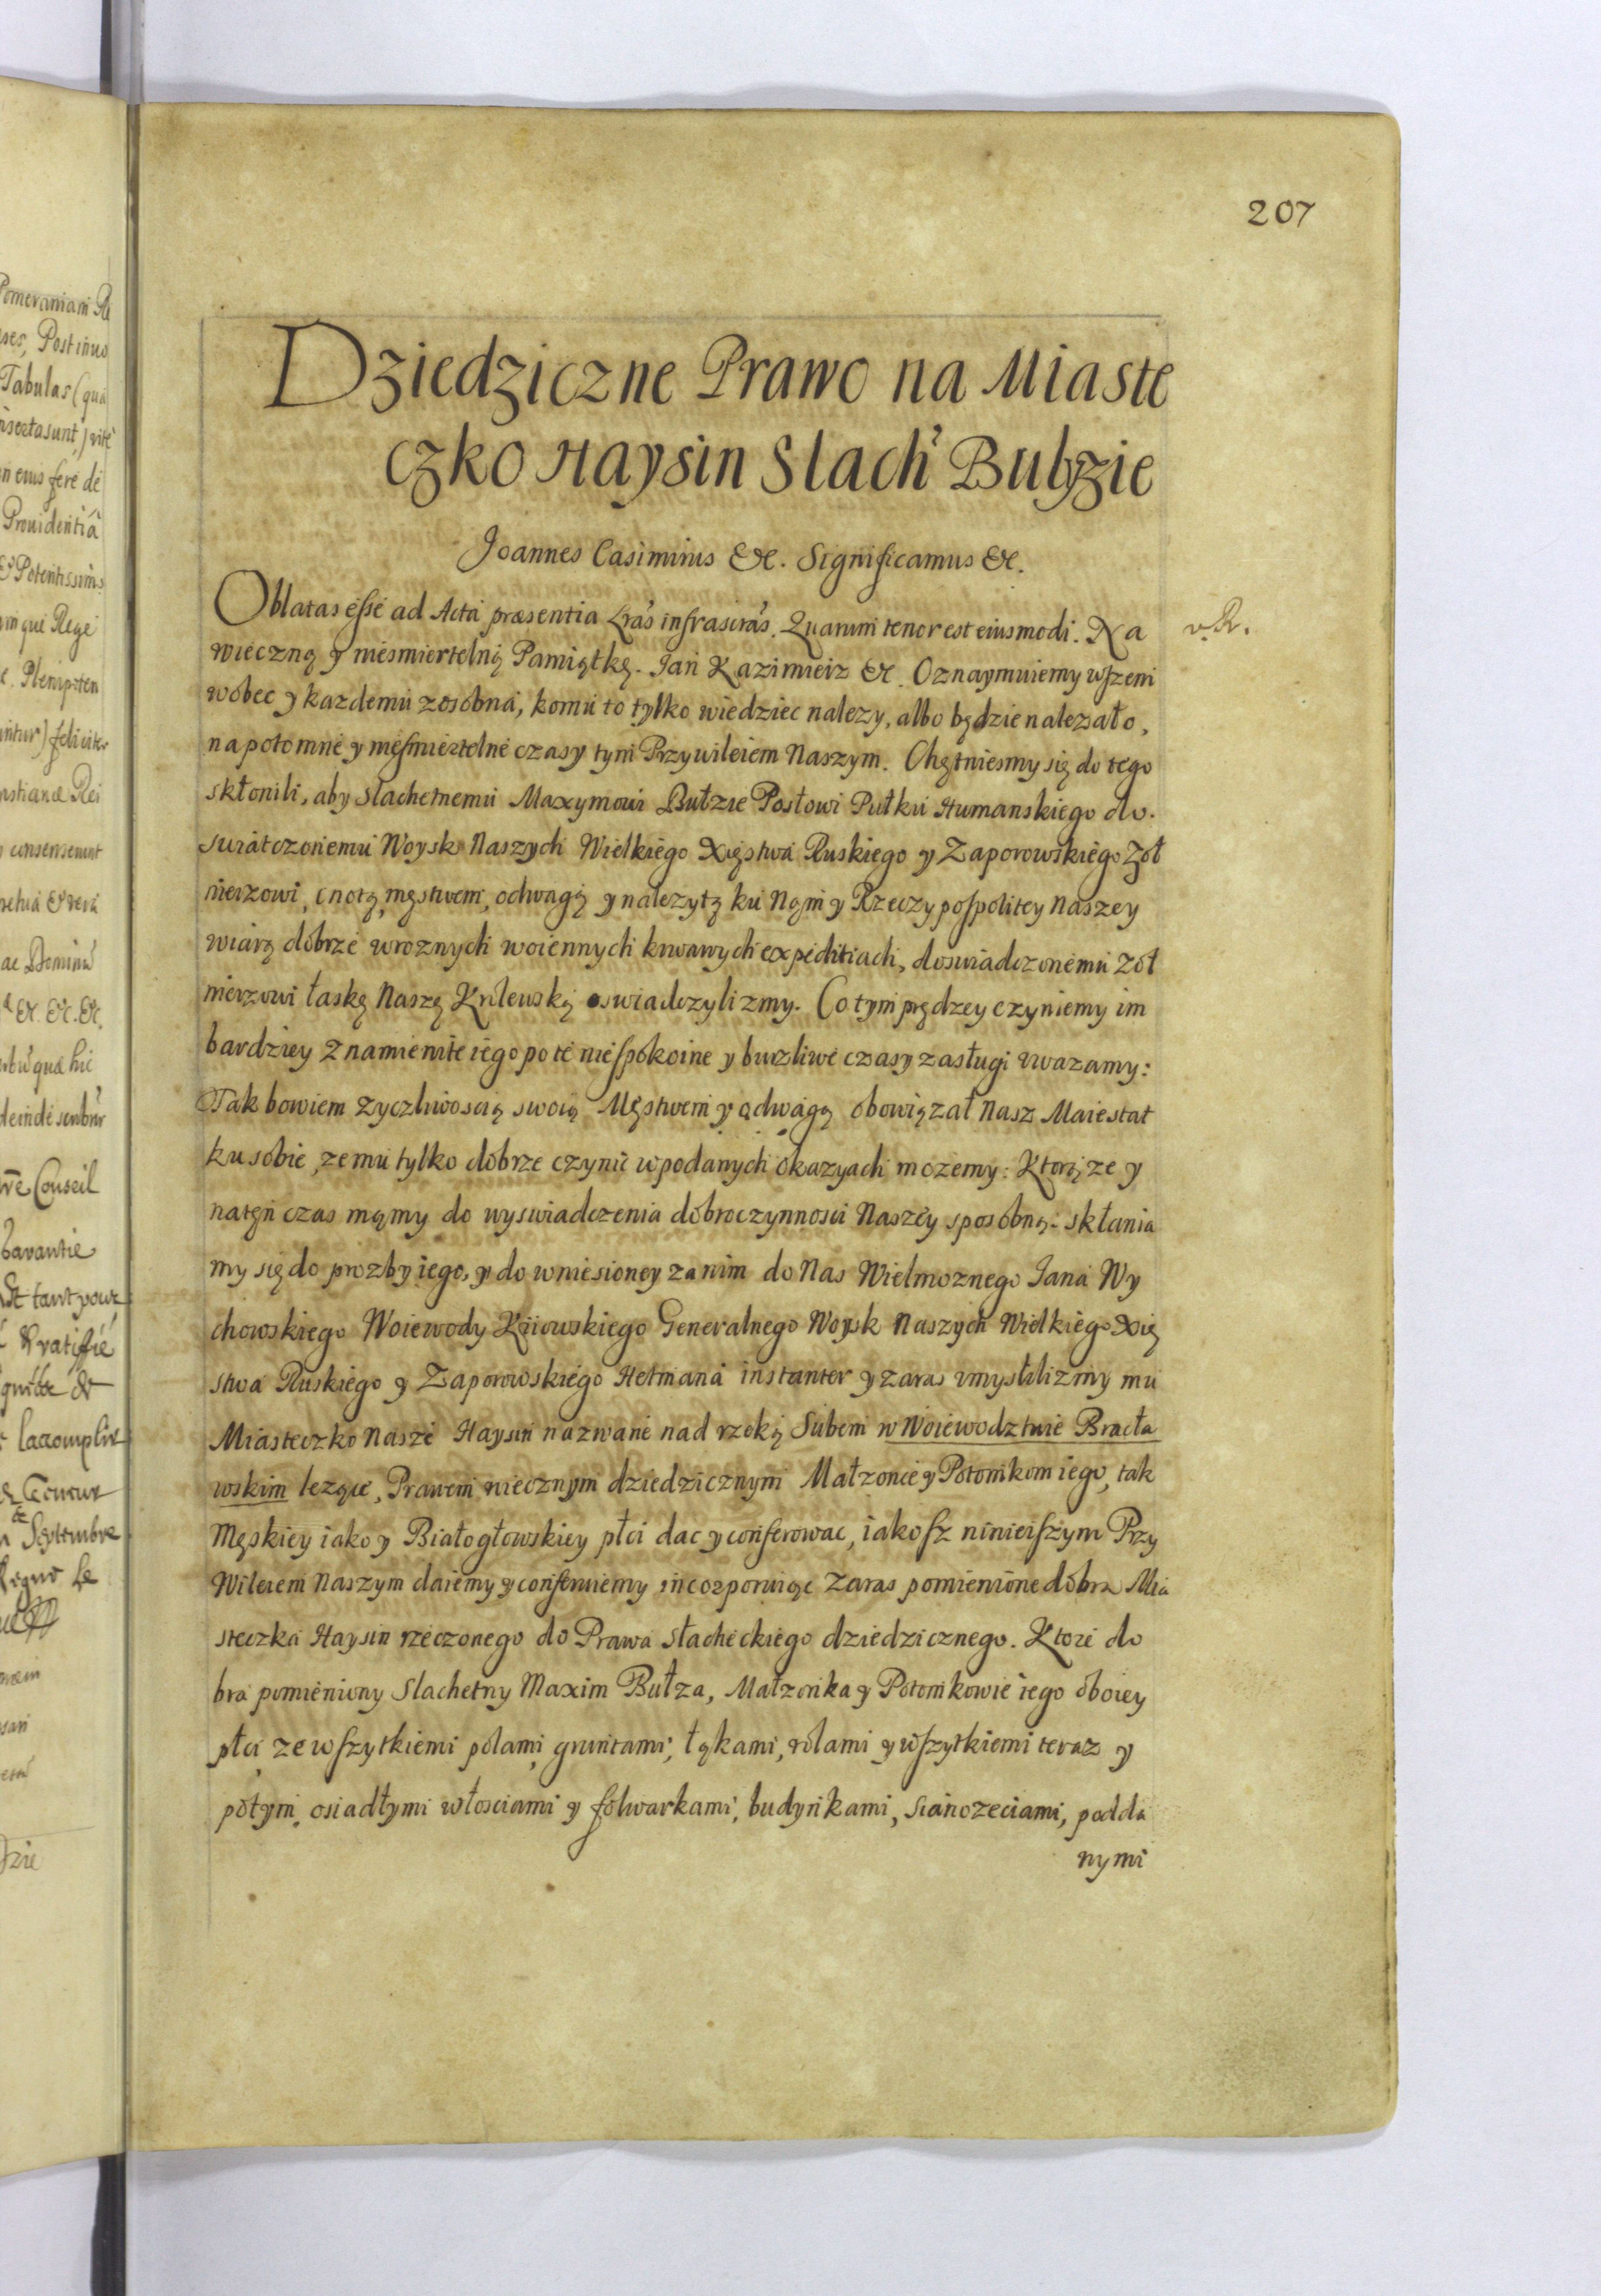 207
Dziedziczne Prawo na Miaste
czko Haysin Slach' Bubzie
Joannes Casimirus &c. Significamus &c.
Oblatas esse ad Acta præsentia Lras infrascras. Quarum tenor est eiusmodi. Na
v.R.
wieczną y niesmiertelną Pamiątkę. Jan Kazimierz &c. Oznaymuiemy wszem
wobec y kazdemu zosobna, komu to tylko wiedziec nalezy, albo będzie nalezało,
na potomne y niesmiertelne czasy tym Przywileiem Naszym. Chętniesmy się do tego
skłonili, aby Slachetnemu Maxymowi Bułzie Posłowi Pułku Humanskiego do
swiatczonemu Woysk Naszych Wielkiego Xięstwa Ruskiego y Zaporowskiego Zoł
nierzowi, cnotą, męstwem, odwagą y nalezytą ku Nąm y Rzeczypospolitey Naszey
wiarą dobrze wroznych woiennych krwawych expeditiach, doswiadczonemu Zoł
nierzowi łaskę Naszę Krolewską oswiadczylizmy. Co tym prędzey czyniemy im
bardziey znamienite iego po te niespokoine y burzliwe czasy zasługi uwazamy:
Tak bowiem zyczliwoscią swoią Męstwem y odwagą obowiązał Nasz Maiestat
ku sobie, ze mu tylko dobrze czynić wpodanych okazyach mozemy: Ktorą ze y
natęn czas mąmy do wyswiadczenia dobroczynnosci Naszey sposobną. skłania
my się do prozby iego, y do wniesioney zanim do Nas Wielmoznego Jana Wy
chowskiego Woiewody Kiiowskiego Generalnego Woysk Naszych Wielkiego Xię
stwa Ruskiego y Zaporowskiego Hetmana instanter y zaras umyslilizmy mu
Miasteczko Nasze Haysin nazwane nad rzeką Subem w Woiewodztwie Bracła
wskim lezące, Prawem wiecznym dziedzicznym Małzonce y Potomkom iego, tak
Męskiey iako y Białogłowskiey płci dac y conferowac, iakosz ninieiszym Przy
Wileiem Naszym daiemy y conferuiemy incorporuiąc zaras pomienione dobra Mia
steczka Haysin rzeczonego do Prawa słacheckiego dziedzicznego. Ktore do
bra pomieniony Slachetny Maxim Bułza, Małzonka y Potomkowie iego oboiey
płci ze wszytkiemi polami, gruntami, łąkami, rolami y wszytkiemi teraz y
potym osiadłymi włosciami y folwarkami, budynkami, sianozeciami, podda
nymi